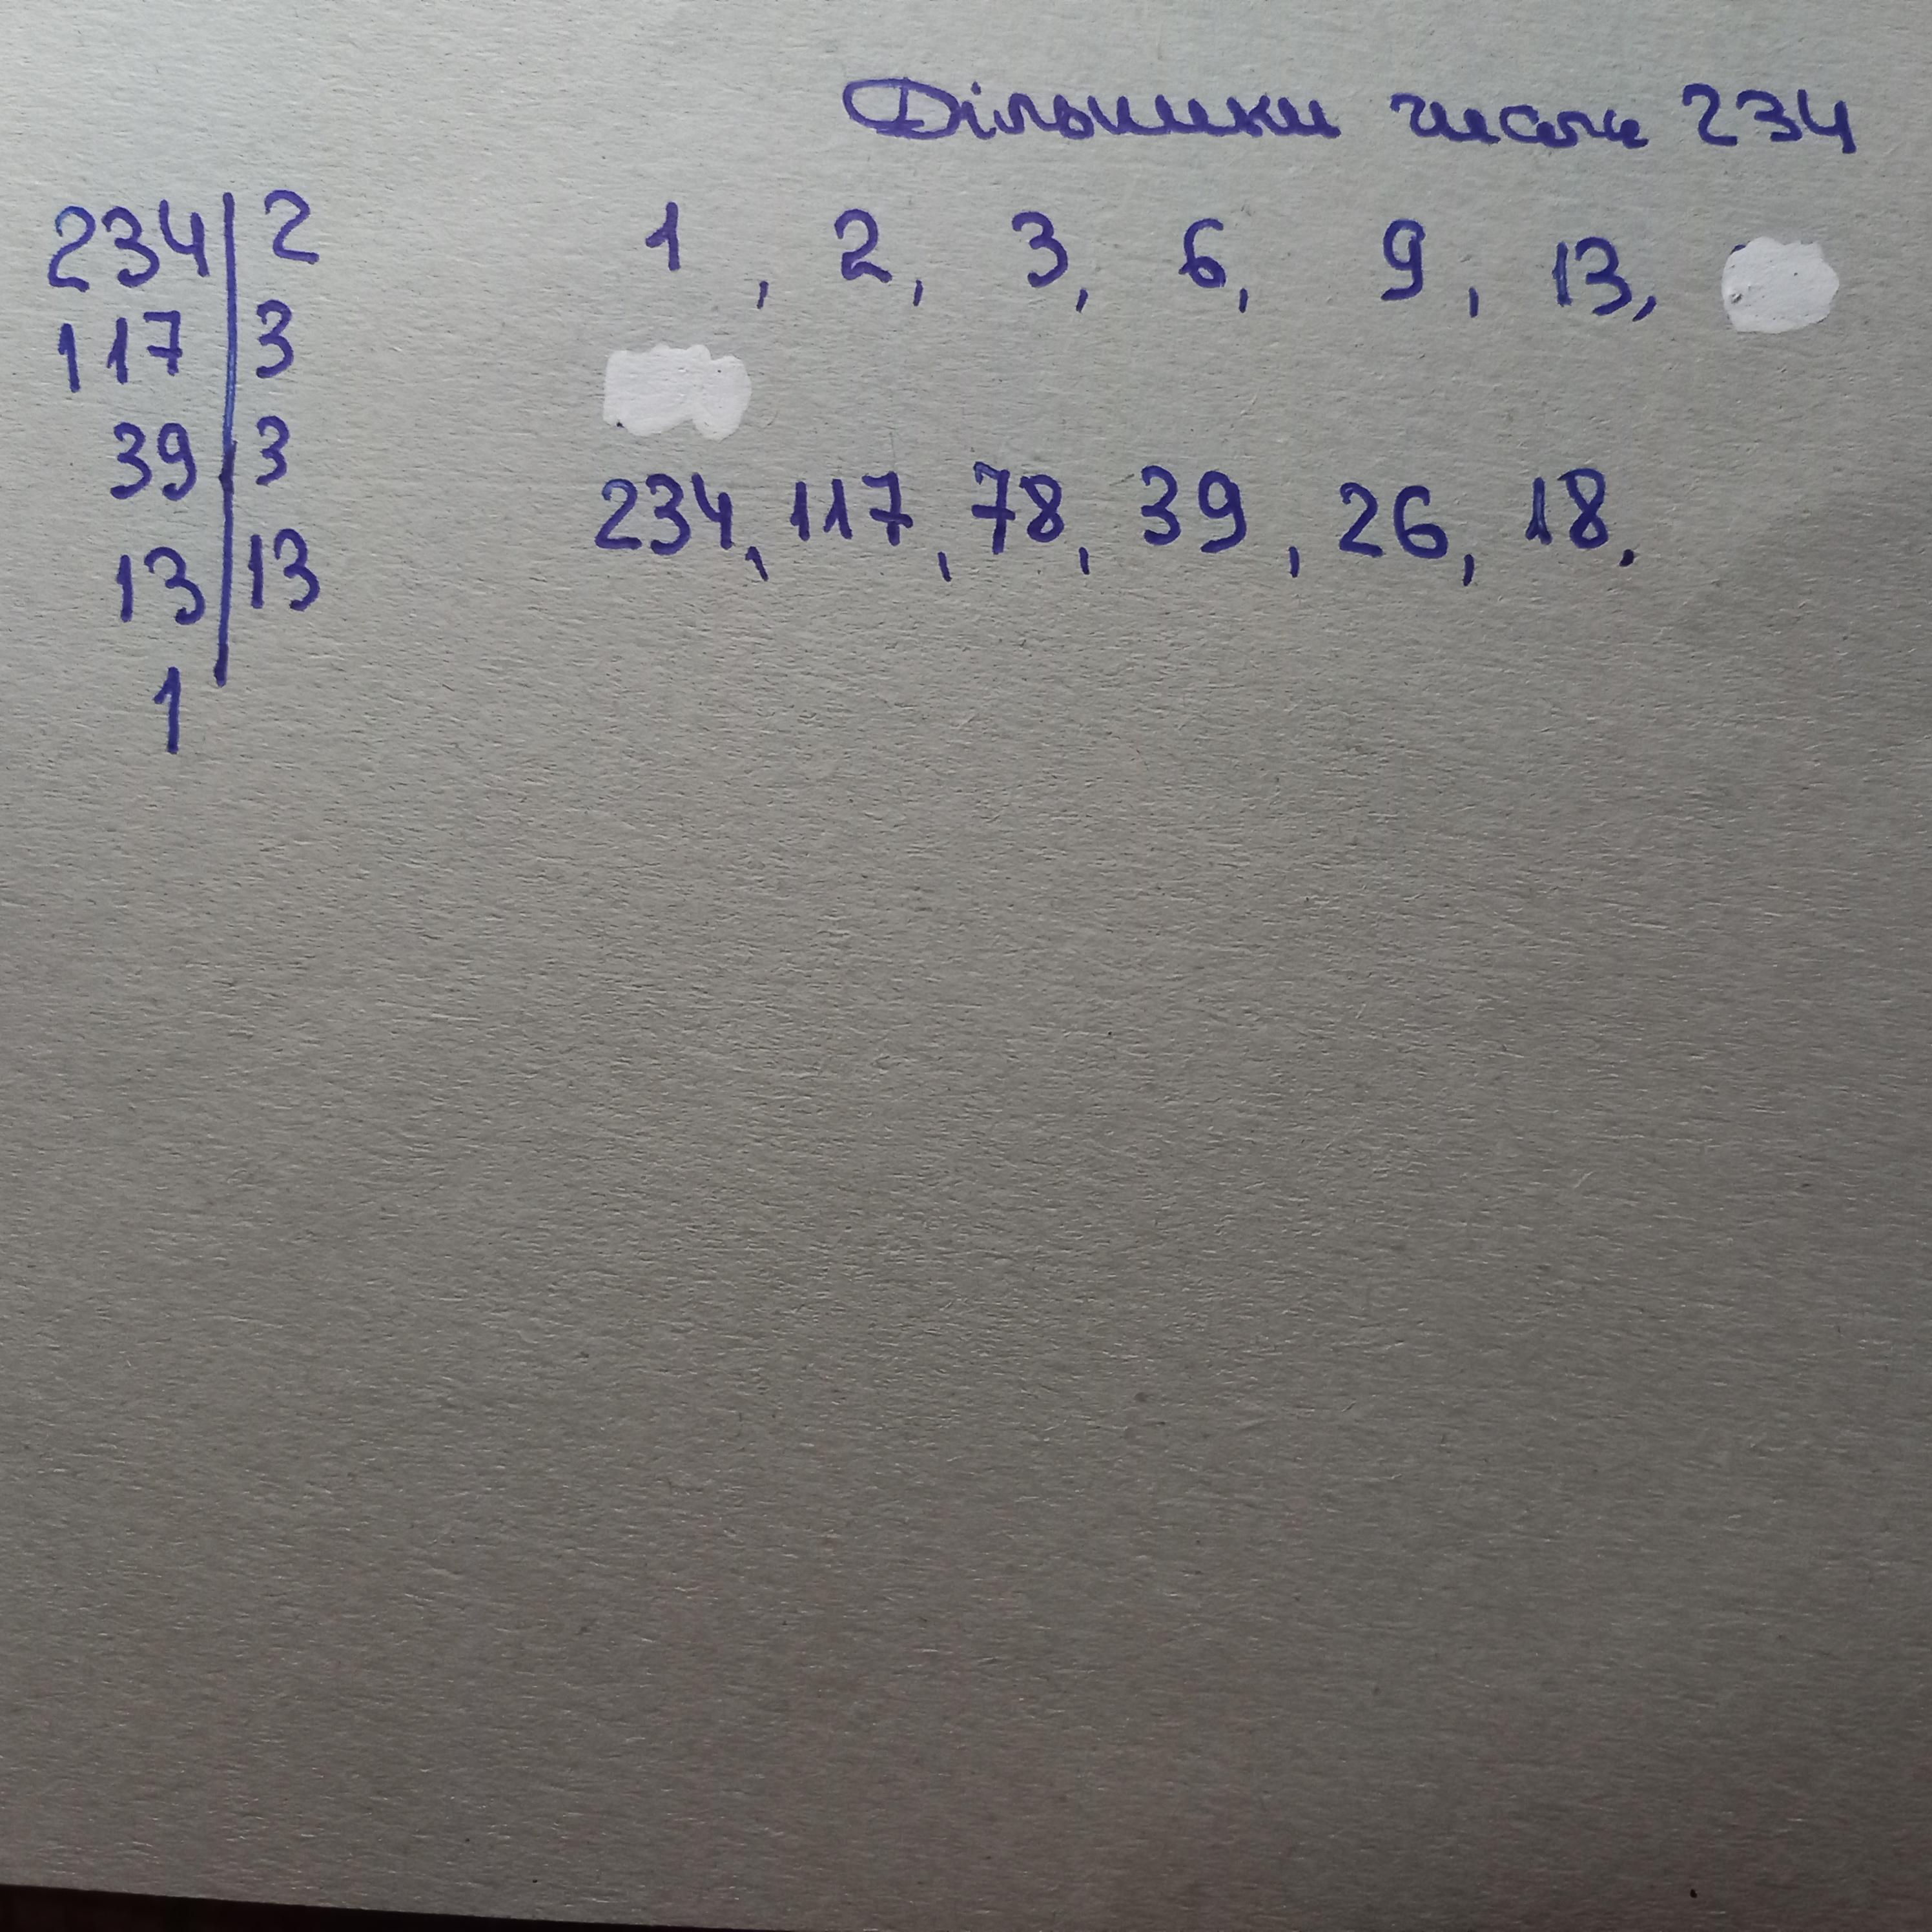 Дільники числа 234
234 | 2
117 | 3
39 | 3
13 | 13
1
1, 2, 3, 6, 9, 13,
234, 117, 78, 39, 26, 18.